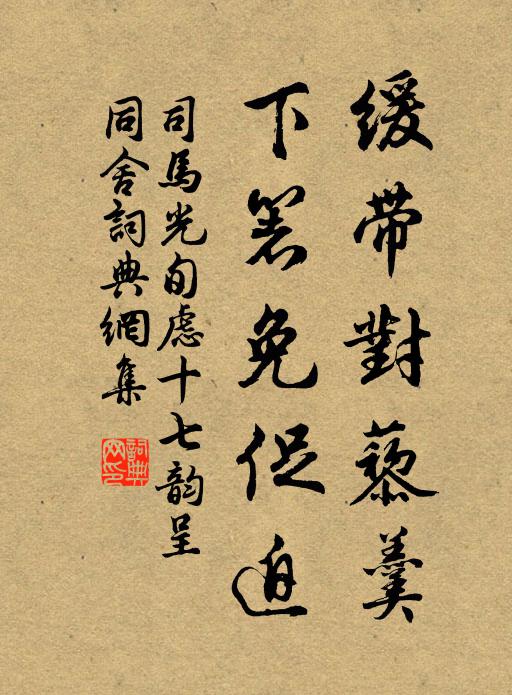 緩帶對藜羹
下箸免促迫
司馬光旬慮十七韵呈
同舍詞典網集
詞典
网印